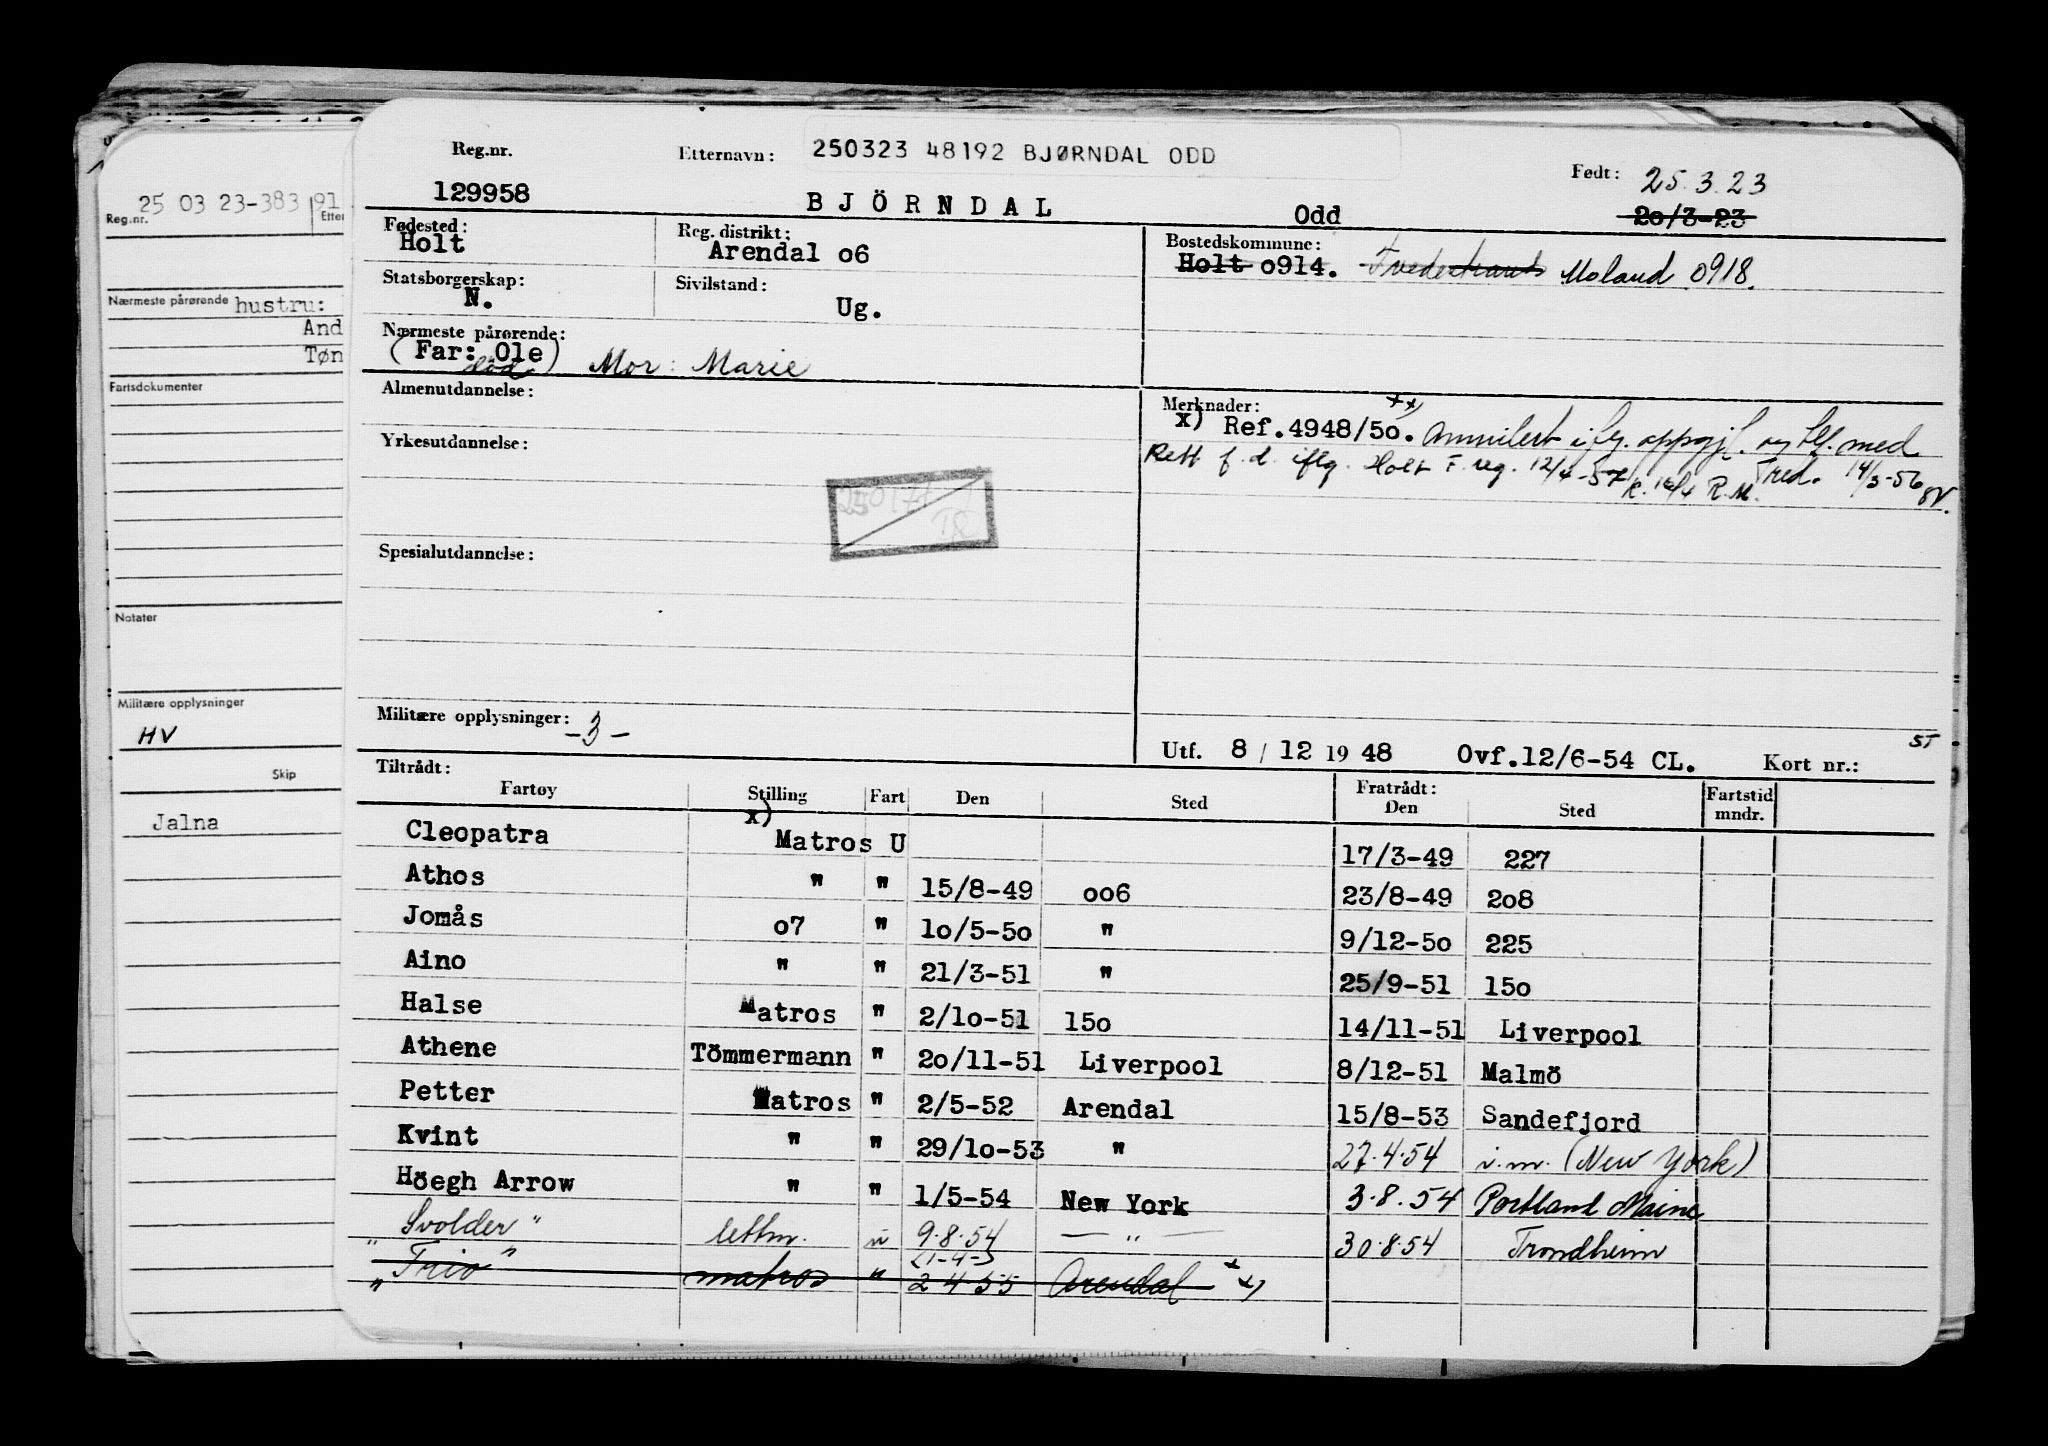 25 03 23-383 91
Reg.nr. Etter
Nærmeste pårørende hustru:
And
Tøn
Fartsdokumenter
Notater
Militære opplysninger
HV
Skip
Jalna
Reg.nr. Etternavn: 250323 48192 BJØRNDAL ODD Født: 25.3.23
129958 BJÖRNDAL Odd 20/3-23
Fødested: Holt Reg. distrikt: Arendal o6 Bostedskommune: Holt o914. Tvedestrand Moland 0918.
Statsborgerskap: N. Sivilstand: Ug.
Nærmeste pårørende:
(Far: Ole) Mor: Marie
død
Almenutdannelse:
Merknader: xx)
x) Ref.4948/5o. Annulert iflg. oppgj. og tlf. med
Rett f.d. iflg. Holt F. reg. 12/4-57 K. 12/4 R.M. Tved. 14/3-56
Yrkesutdannelse:
Spesialutdannelse:
Militære opplysninger: -3-
Utf. 8 / 12 19 48 Ovf.12/6-54 CL. Kort nr.: ST
Tiltrådt: Fratrådt:
Fartøy Stilling Fart Den Sted Den Sted Fartstid mndr.
Cleopatra x) Matros U 17/3-49 227
Athos " " 15/8-49 oo6 23/8-49 2o8
Jomås o7 " 1o/5-5o " 9/12-5o 225
Aino " " 21/3-51 " 25/9-51 15o
Halse Matros " 2/1o-51 15o 14/11-51 Liverpool
Athene Tömmermann " 2o/11-51 Liverpool 8/12-51 Malmö
Petter Matros " 2/5-52 Arendal 15/8-53 Sandefjord
Kvint " " 29/1o-53 " 27.4.54 i.m. (New York)
Höegh Arrow " " 1/5-54 New York 3.8.54 Portland Maine
"Svolder" lettm. u 9.8.54 — " — 30.8.54 Trondheim
(1-4-)
"Trio" matros " 2 4 55 Arendal xx)